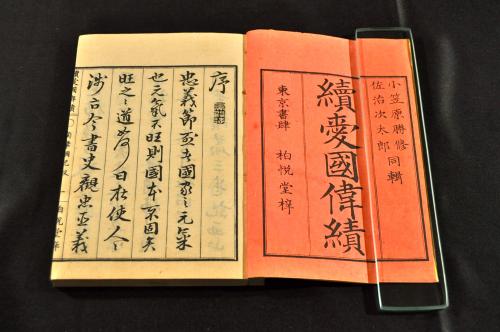 小笠原勝修
佐治次太郎
同輯
續愛國偉績
東京書肆 柏悦堂梓
序
忠義節烈者國家之元氣
也元氣不旺則國本不固矣
旺之之道無日在使人人
涉古今書史觀忠臣義